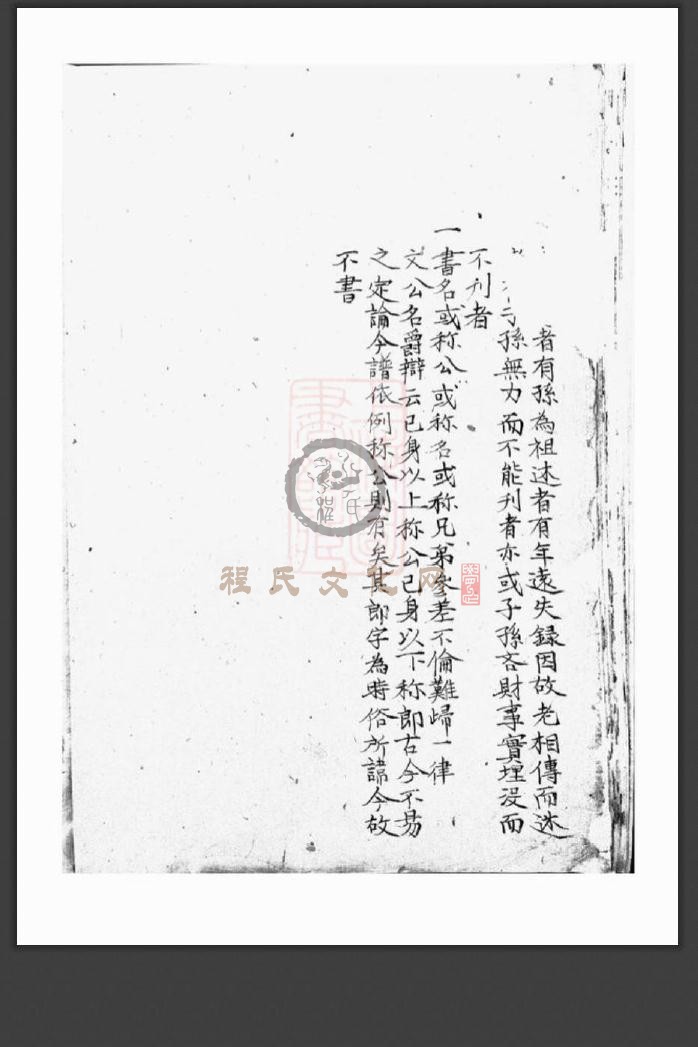 者有孫為祖述者有年遠失録因故老相傳而述
孫無力而不能刊者亦或子孫吝財事實埋没而
不刋者
一書名或称公或称名或称兄弟參差不倫難歸一律
文公名爵辯云已身以上称公已身以下称郎古今不易
之定論今譜依例称公則有矣其郎字為時俗所諱今故
不書
程氏文化网